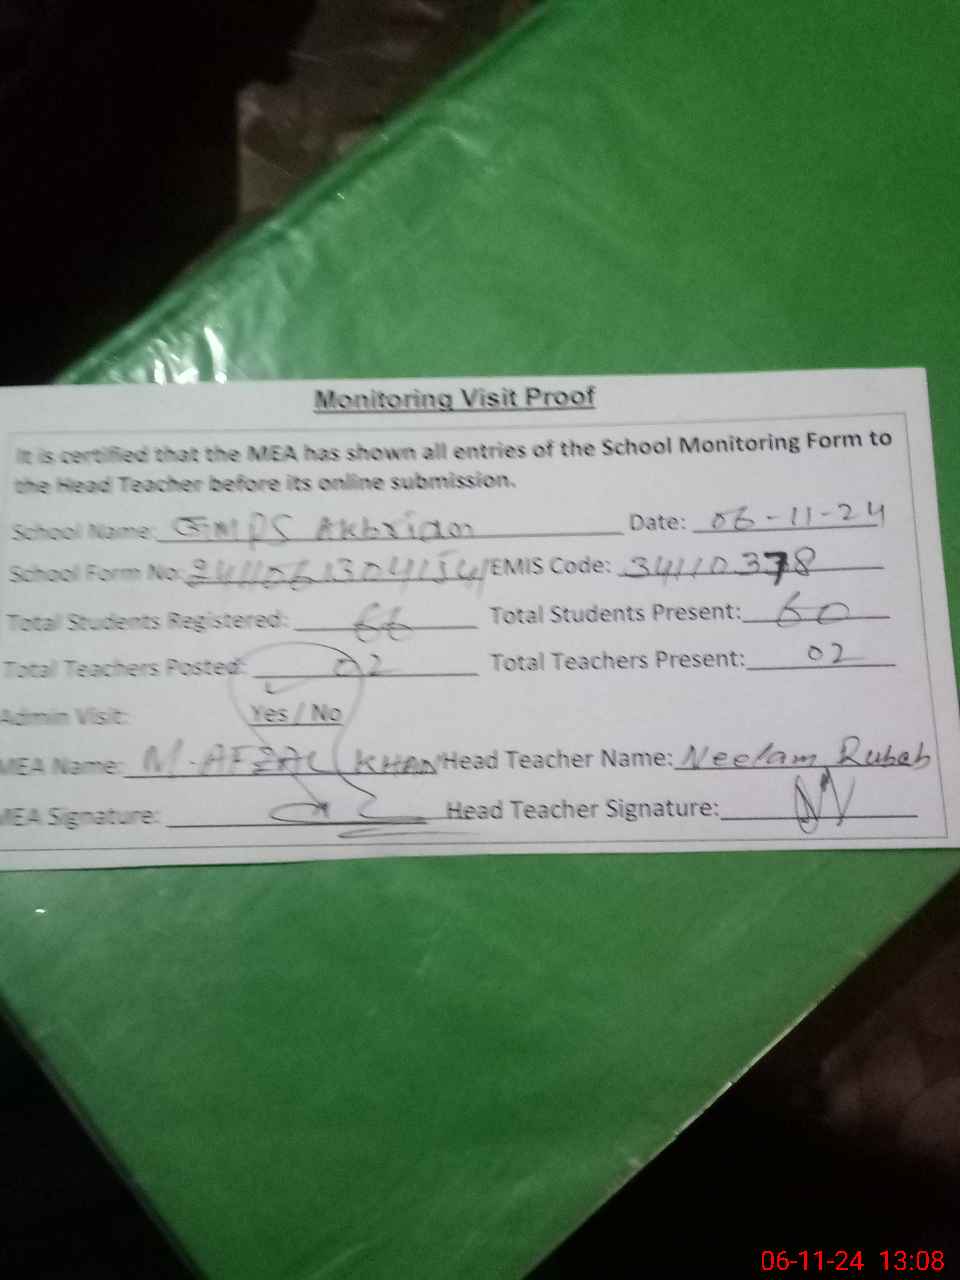 Monitoring Visit Proof
It is certified that the MEA has shown all entries of the School Monitoring Form to
the Head Teacher before its online submission.
School Name: GMPS Akbrian Date: 06-11-24
School Form No: EMIS Code: 34110378
Total Students Registered: 66 Total Students Present: 60
Total Teachers Posted: 02 Total Teachers Present: 02
Admin Visit: Yes / No
MEA Name: M. AFZAL KHAN Head Teacher Name: Neelam Rubab
MEA Signature: Head Teacher Signature:
06-11-24 13:08